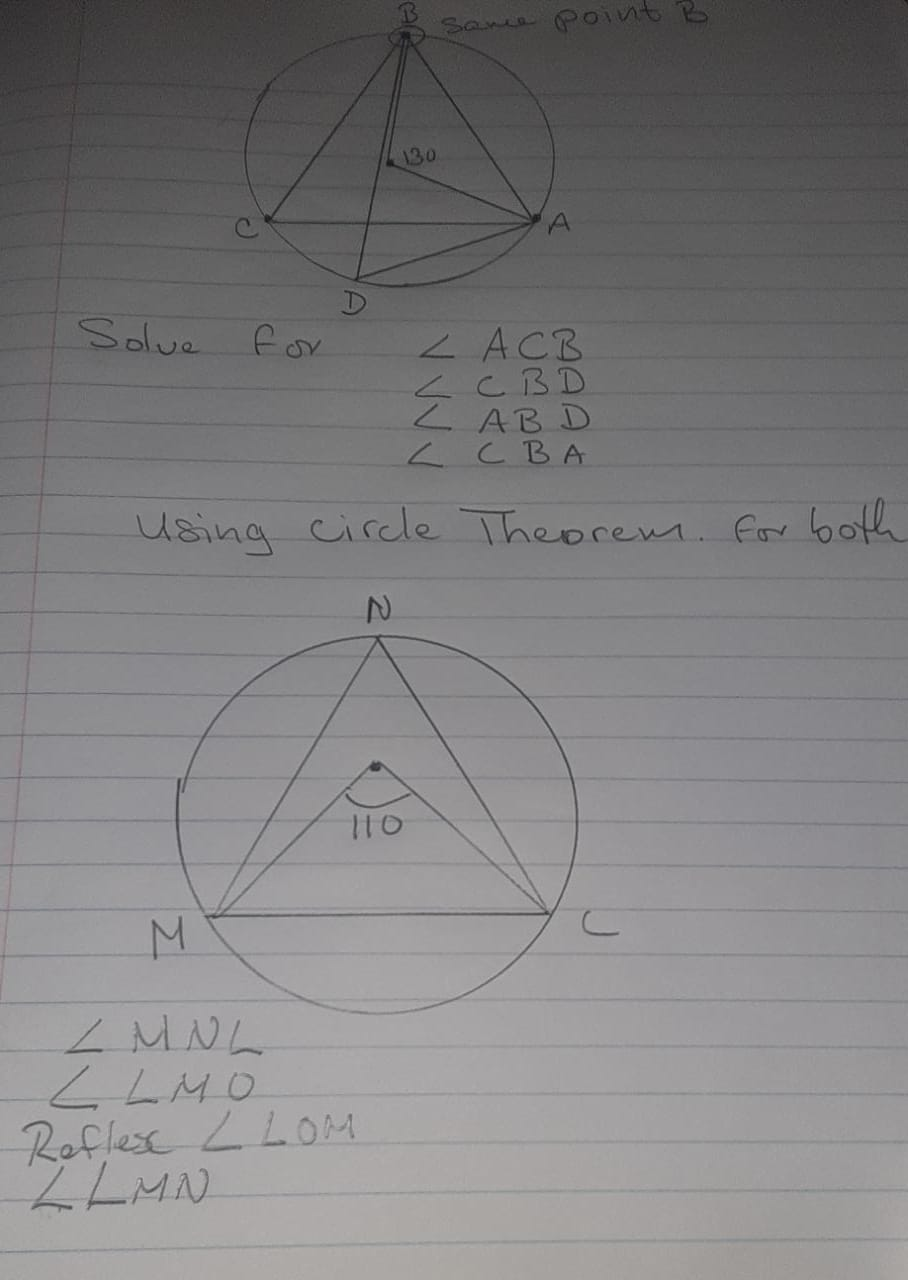 B same point B
130
C
A
D
Solve for ∠ ACB
∠ CBD
∠ ABD
∠ CBA
Using circle Theorem. For both
N
110
M
L
∠ MNL
∠ LMO
Reflex ∠ LOM
∠ LMN